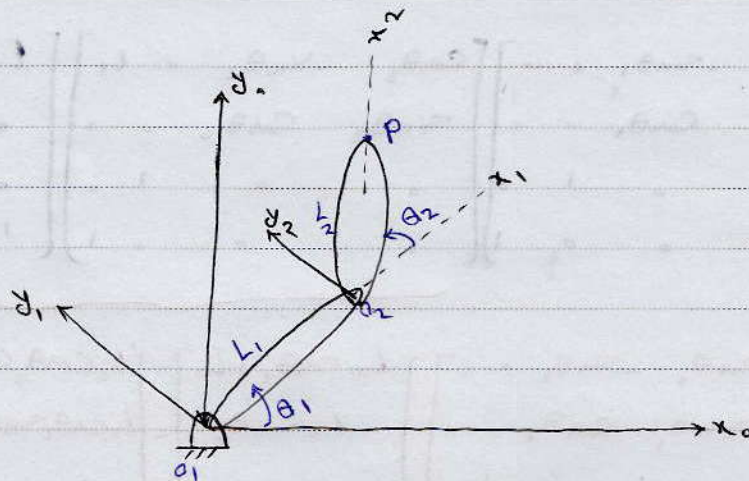 x₂
y₀
P
x₁
L₂
θ₂
y₂
y₁
O₂
L₁
θ₁
x₀
O₁